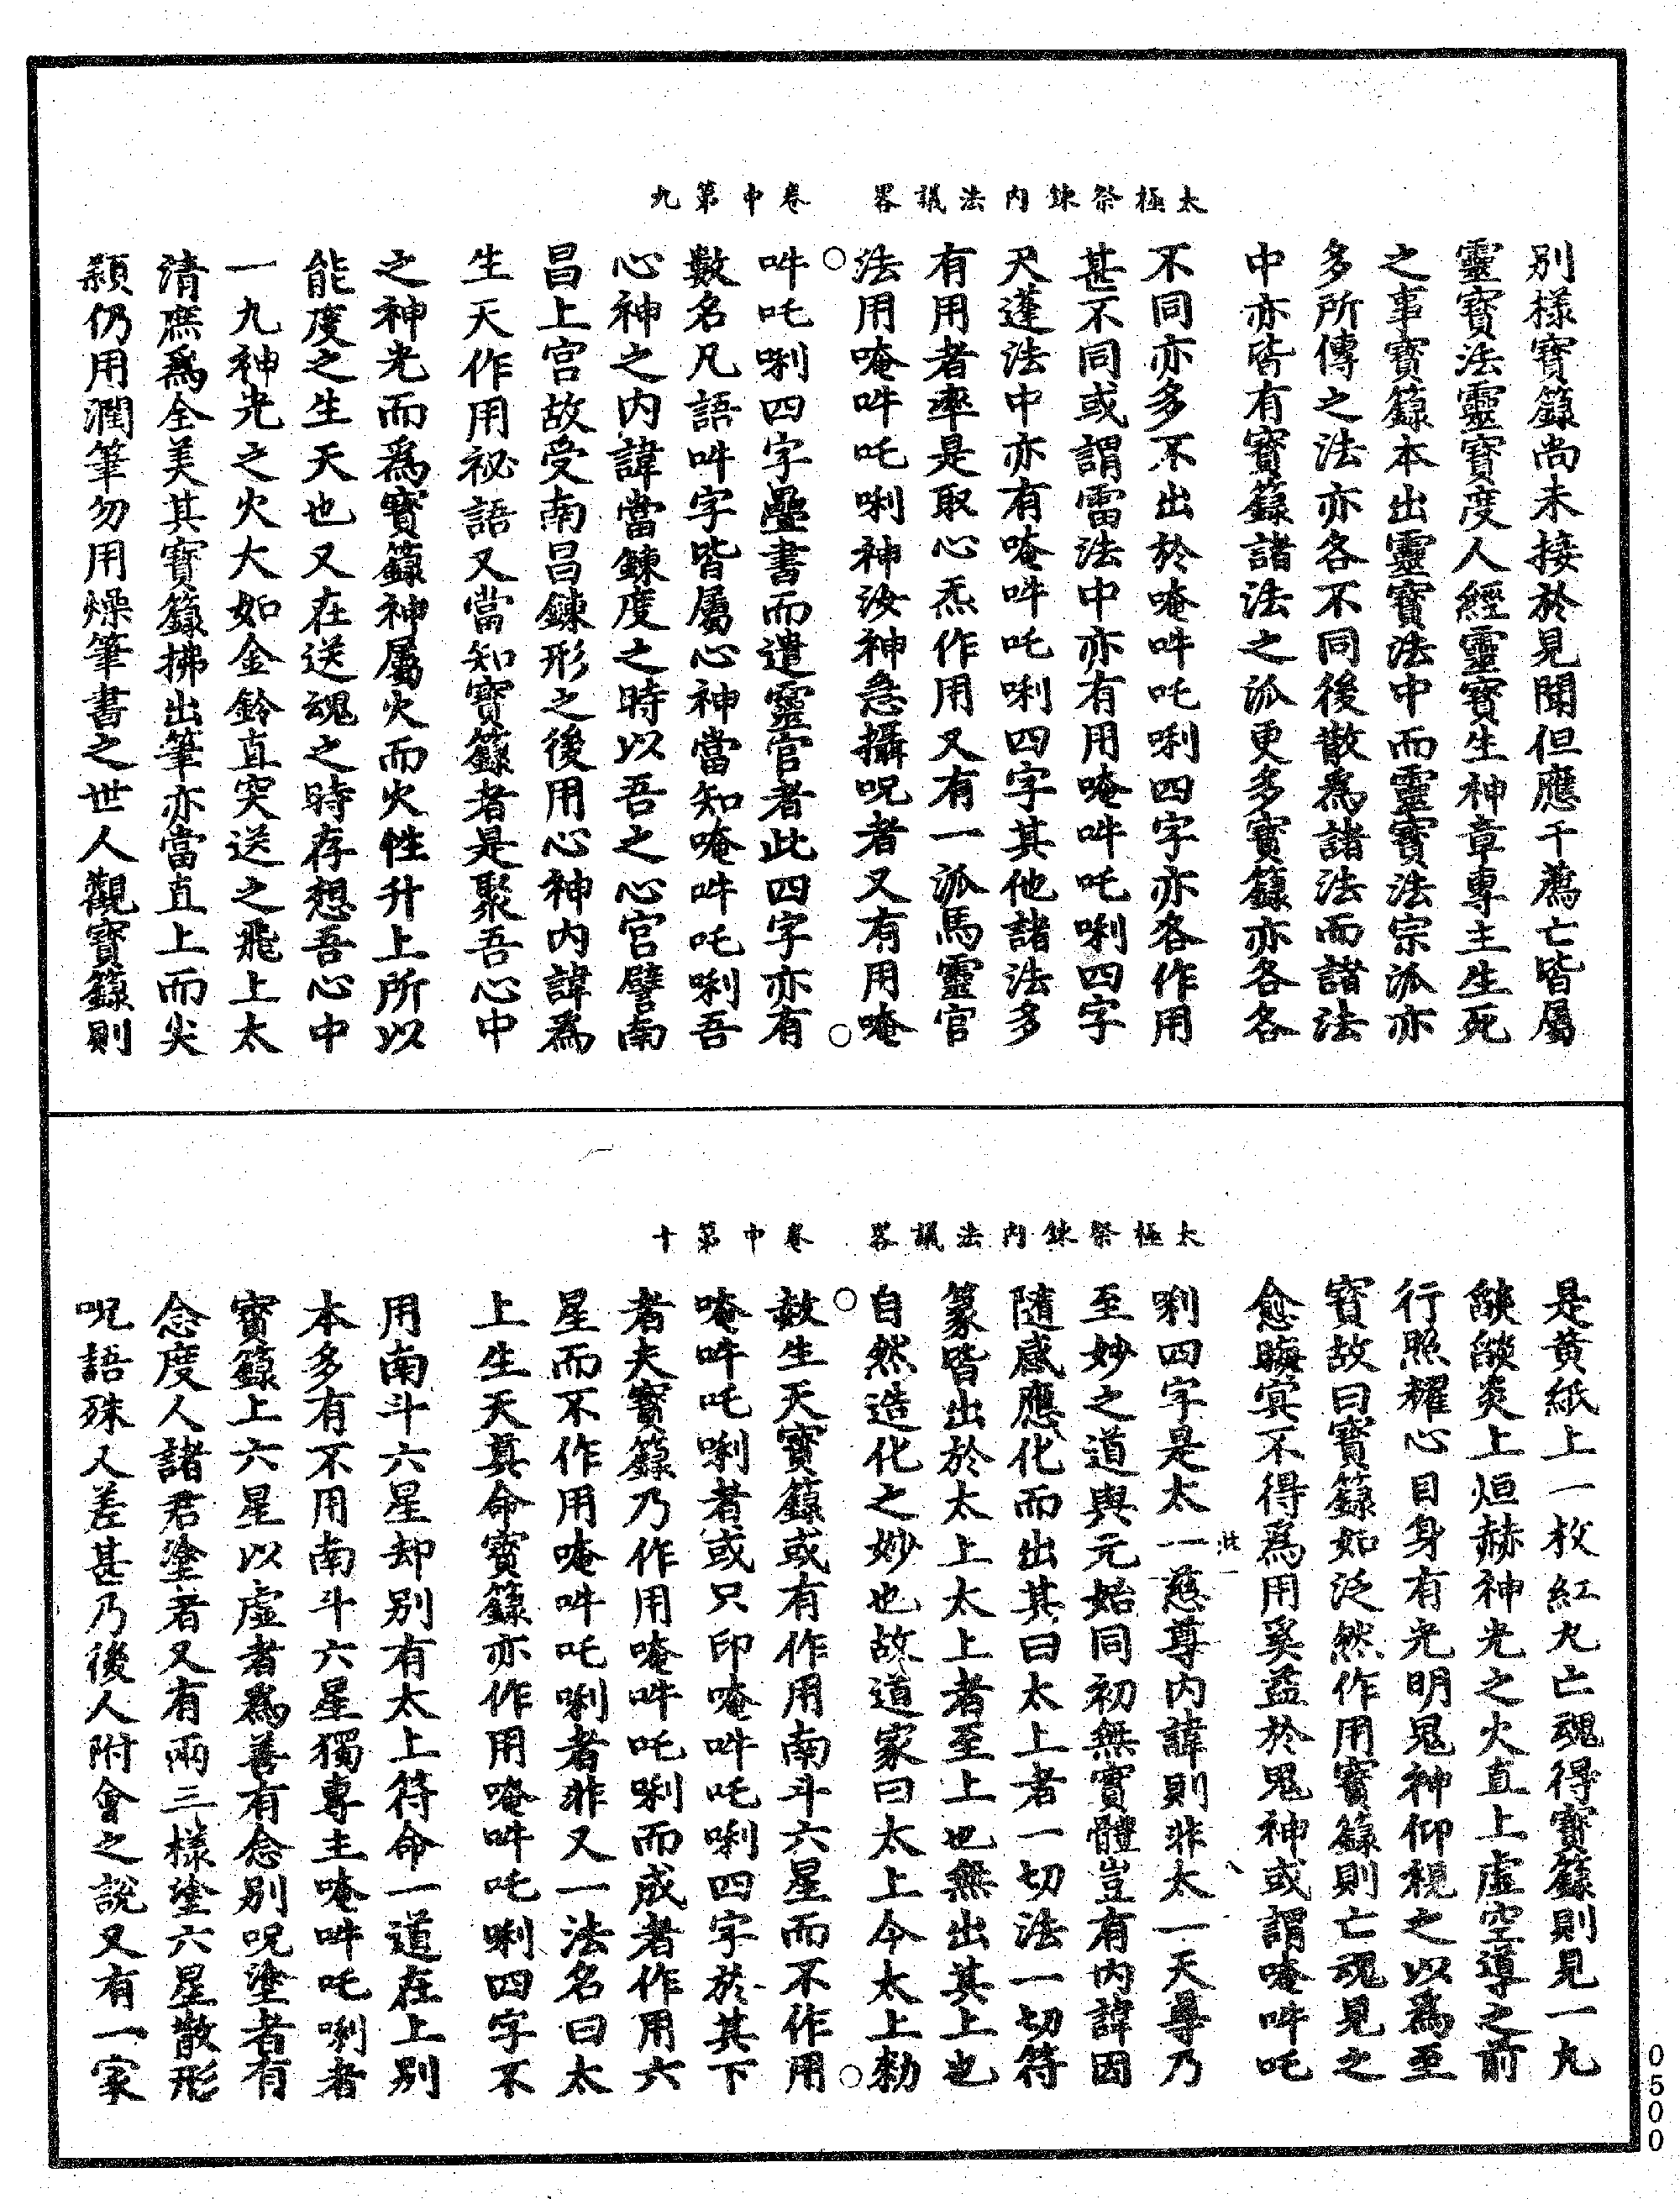 太極祭鍊內法議畧　卷中第九
別樣寶籙尚未接於見聞但應干薦亡皆屬
靈寶法靈寶度人經靈寶生神章專主生死
之事寶籙本出靈寶法中而靈寶法宗派亦
多所傳之法亦各不同後散爲諸法而諸法
中亦皆有寶籙諸法之派更多寶籙亦各各
不同亦多不出於唵吽吒唎四字亦各作用
甚不同或謂雷法中亦有用唵吽吒唎四字
天蓬法中亦有唵吽吒唎四字其他諸法多
有用者率是取心炁作用又有一派馬靈官
法用唵吽吒唎神汝神急攝呪者又有用唵
吽吒唎四字疊書而遣靈官者此四字亦有
數名凡語吽字皆屬心神當知唵吽吒唎吾
心神之內諱當鍊度之時以吾之心宮譬南
昌上宮故受南昌鍊形之後用心神內諱爲
生天作用祕語又當知寶籙者是聚吾心中
之神光而爲寶籙神屬火而火性升上所以
能度之生天也又在送魂之時存想吾心中
一九神光之火大如金鈴直突送之飛上太
清庶爲全美其寶籙拂出筆亦當直上而尖
頴仍用潤筆勿用燥筆書之世人觀寶籙則
太極祭鍊內法議畧　卷中第十
是黄紙上一枚紅九亡魂得寶籙則見一九
燄燄炎上烜赫神光之火直上虛空導之前
行照耀心目身有光明鬼神仰視之以爲至
寶故曰寶籙如泛然作用寶籙則亡魂見之
愈晦冥不得爲用奚益於鬼神或謂唵吽吒
唎四字是太一慈尊內諱則非太一天尊乃
至妙之道與元始同初無實體豈有內諱因
隨感應化而出其曰太上者一切法一切符
篆皆出於太上太上者至上也無出其上也
自然造化之妙也故道家曰太上今太上勑
赦生天寶籙或有作用南斗六星而不作用
唵吽吒唎者或只印唵吽吒唎四字於其下
者夫寶籙乃作用唵吽吒唎而成者作用六
星而不作用唵吽吒唎者非又一法名曰太
上生天真命寶籙亦作用唵吽吒唎四字不
用南斗六星却別有太上符命一道在上別
本多有不用南斗六星獨專主唵吽吒唎者
寶籙上六星以虛者爲善有念別呪塗者有
念度人諸君塗者又有兩三樣塗六星散形
呪語殊又差甚乃後人附會之說又有一家
0500